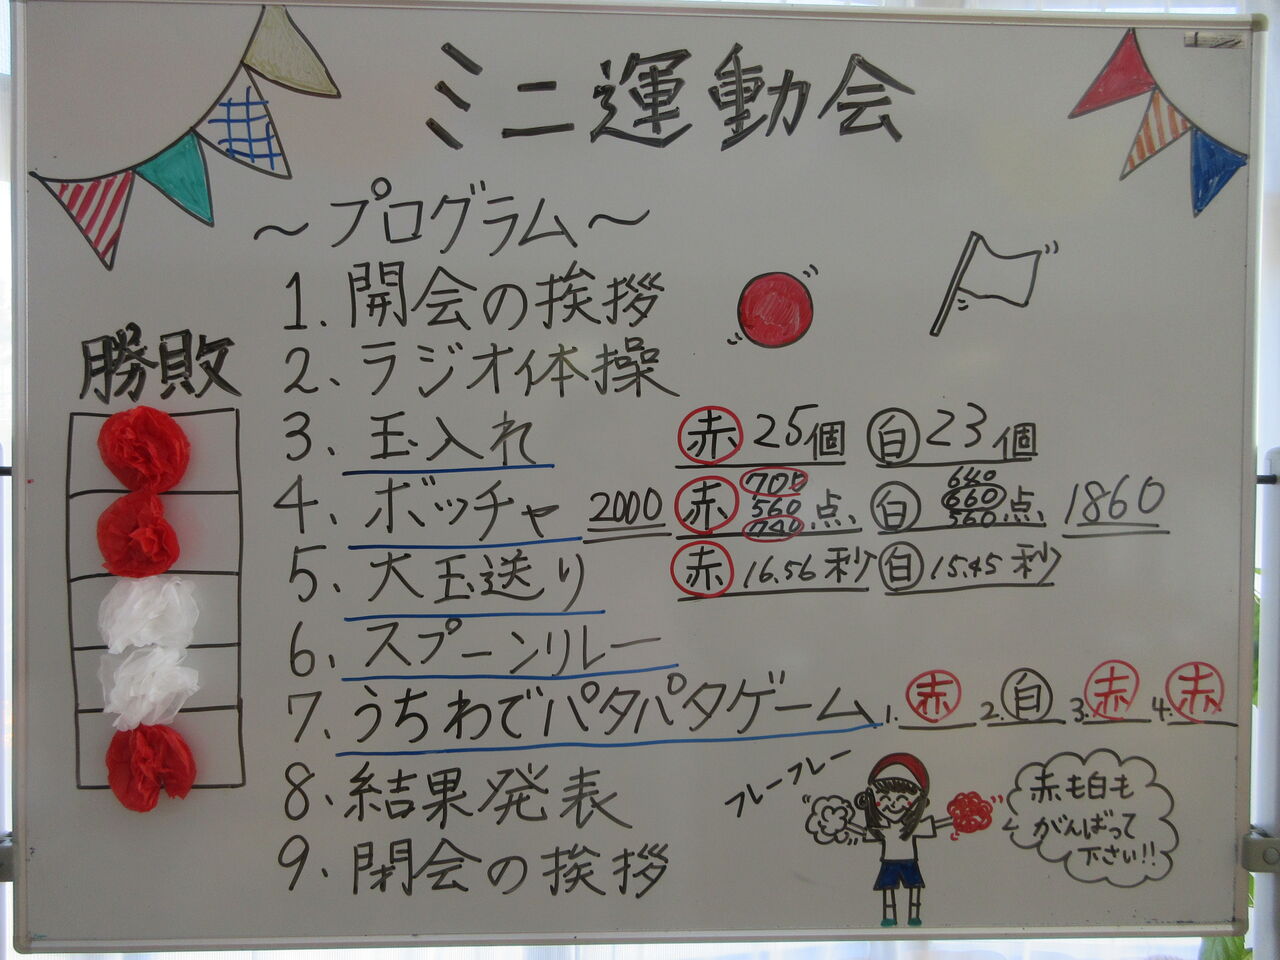 ミニ運動会
～プログラム～
1. 開会の挨拶
2、ラジオ体操
勝敗
3、玉入れ 赤 25個 白 23個
4、ボッチャ 2000 赤 700 560 740 点、 白 640 660 560 点、 1860
5、大玉送り 赤 16.56秒 白 15.45秒
6、スプーンリレー
7、うちわでパタパタゲーム 1. 赤 2. 白 3. 赤 4. 赤
8、結果発表
フレーフレー
赤も白も
がんばって
下さい!!
9、閉会の挨拶